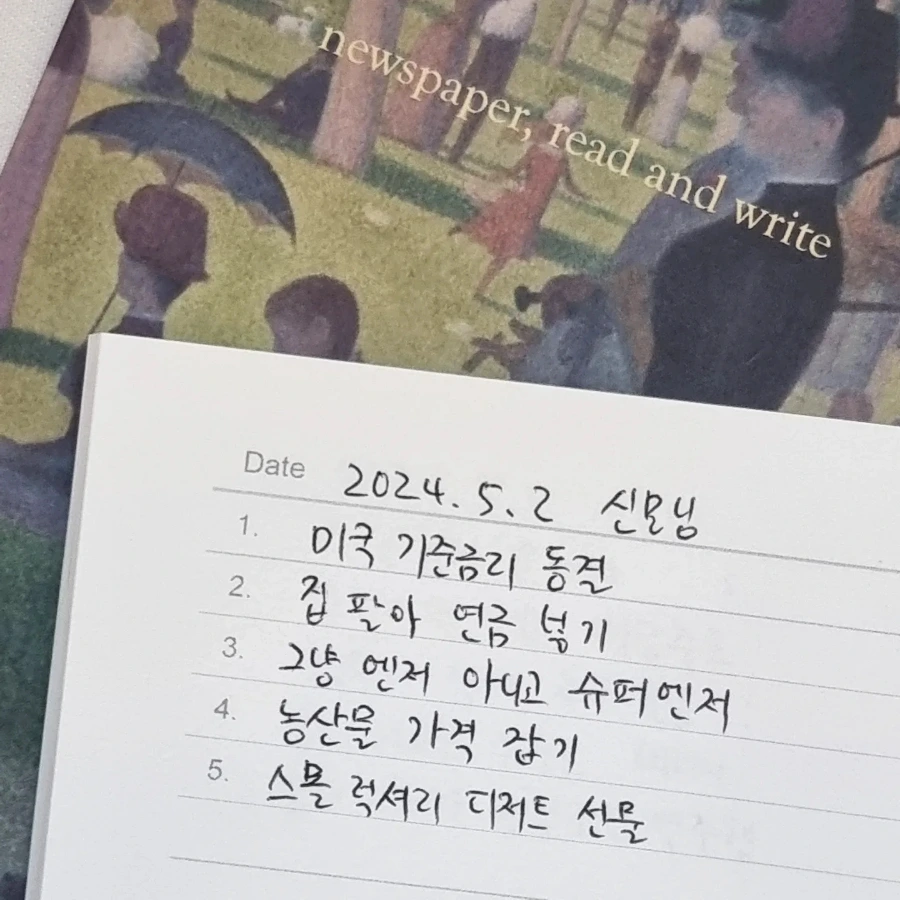 newspaper, read and write
Date 2024. 5. 2 신모닝
1. 미국 기준금리 동결
2. 집 팔아 연금 넣기
3. 그냥 엔저 아니고 슈퍼엔저
4. 농산물 가격 잡기
5. 스몰 럭셔리 디저트 선물